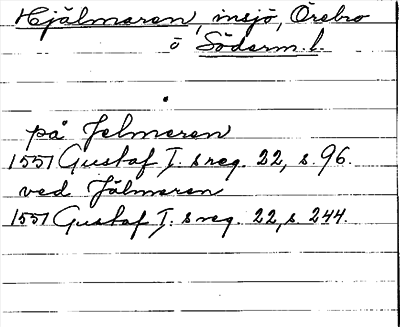 Hjälmaren, insjö, Örebro
o Söderm. l.
på Jelmeren
1551 Gustaf I. s reg. 22, s. 96.
ved Jälmeren
1551 Gustaf I. s reg. 22, s. 244.